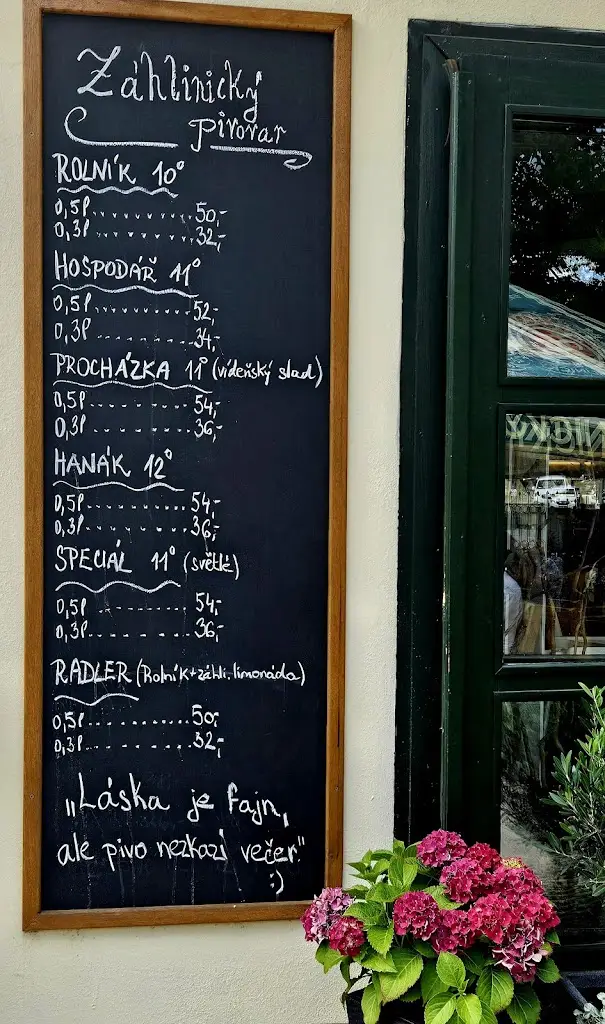 Záhlinický
pivovar
ROLNÍK 10°
0,5l........50,-
0,3l........32,-
HOSPODÁŘ 11°
0,5l........52,-
0,3l........34,-
PROCHÁZKA 11° (vídeňský slad)
0,5l........54,-
0,3l........36,-
HANÁK 12°
0,5l........54,-
0,3l........36,-
SPECIÁL 11° (světlé)
0,5l........54,-
0,3l........36,-
RADLER (Rolník+záhli.limonáda)
0,5l........50,-
0,3l........32,-
„Láska je fajn,
ale pivo nezkazí večer."
:)